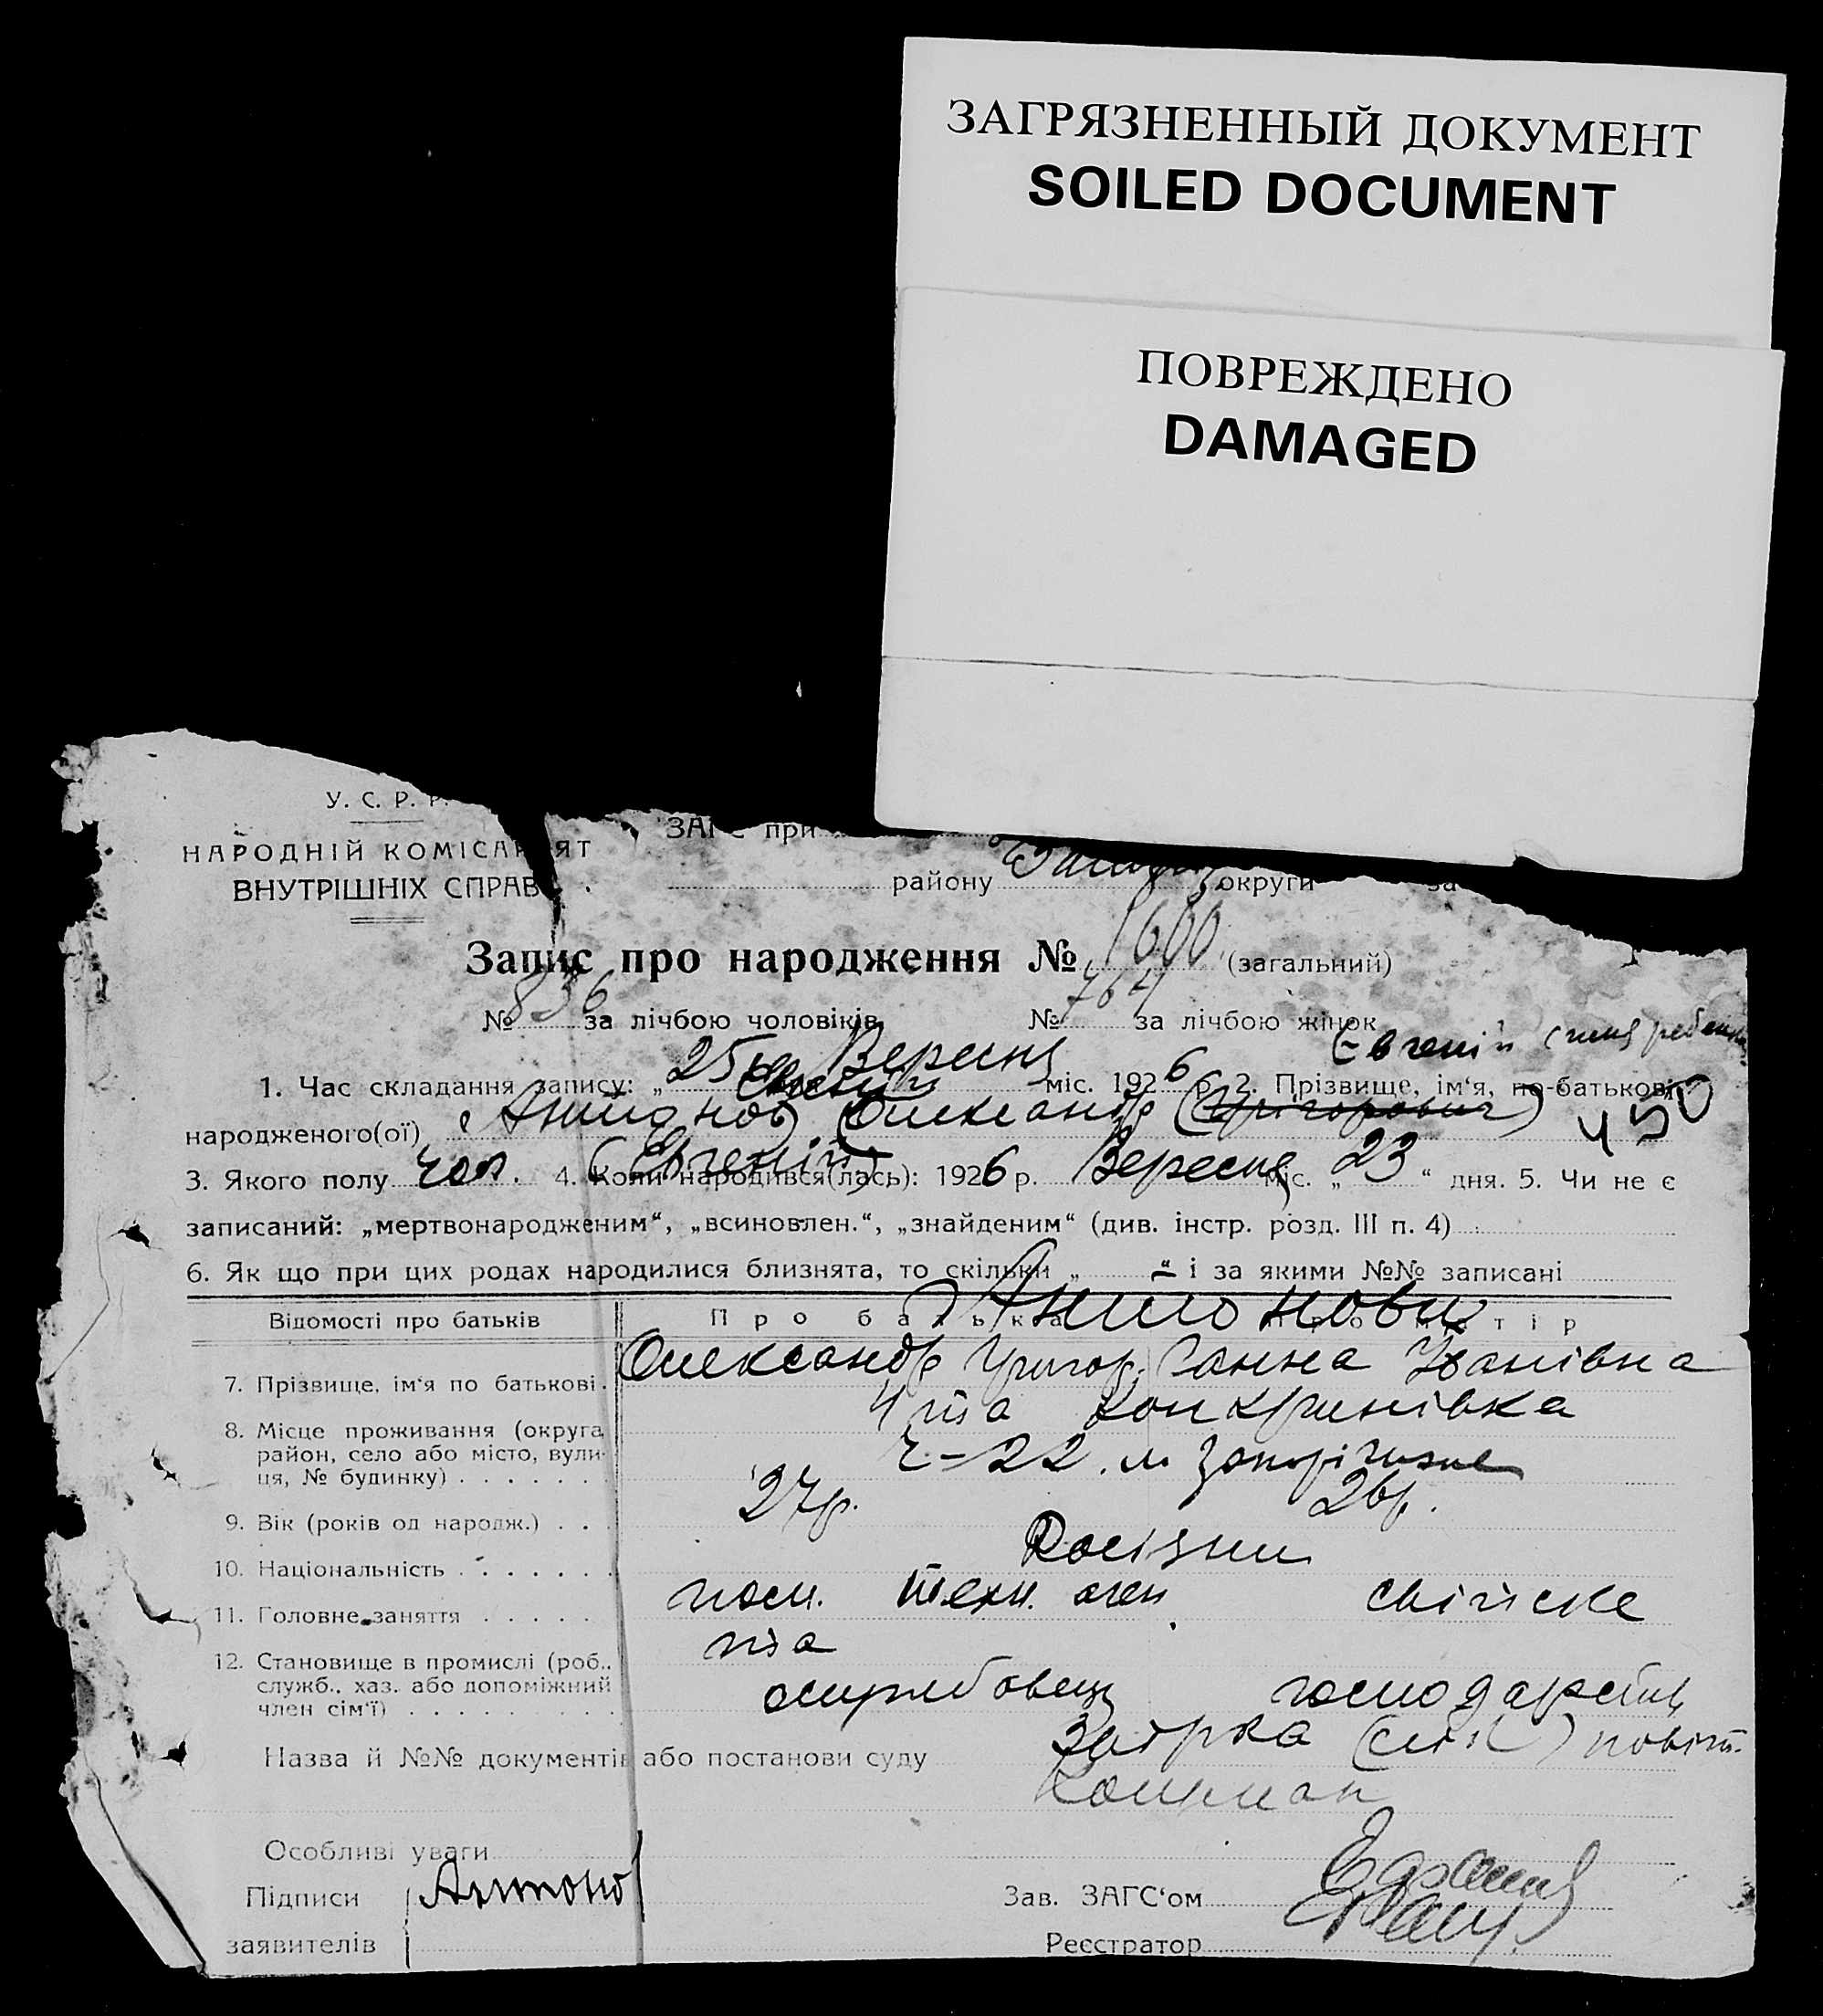 ЗАГРЯЗНЕННЫЙ ДОКУМЕНТ
SOILED DOCUMENT
ПОВРЕЖДЕНО
DAMAGED
У. С. Р. Р.
НАРОДНІЙ КОМІСАРІЯТ
ВНУТРІШНІХ СПРАВ.
ЗАГС при
району округи за
Запис про народження № 1600 (загальний)
№ 836 за лічбою чоловіків № 764 за лічбою жінок
Євгеній
1. Час складання запису: „25 Вересня міс. 1926 р. 2. Прізвище, ім‘я, по-батькові
народженого(ої) Антонов Олександр (Григорович) 450
3. Якого полу чол. 4. Коли народився(лась): 1926 р. Вересня міс. „23“ дня. 5. Чи не є
(Євгеній)
записаний: „мертвонародженим“, „всиновлен.“, „знайденим“ (див. інстр. розд. III п. 4)
6. Як що при цих родах народилися близнята, то скільки „ “ і за якими №№ записані
Відомості про батьків Про батька Про матір
Антонови
7. Прізвище, ім‘я по батькові. Олександр Григор. Ганна Іванівна
8. Місце проживання (округа,
район, село або місто, вули-
ця, № будинку)
ч-22. м Запоріжжє
9. Вік (років од народж.) 27р. 26р.
10. Національність Росіяни
11. Головне заняття пом. техн. свійске
12. Становище в промислі (роб.,
служб., хаз. або допоміжний
член сім‘ї) службовець господарство
Назва й №№ документів або постанови суду
Особливі уваги
Підписи Антонов Зав. ЗАГС‘ом
заявителів Реєстратор